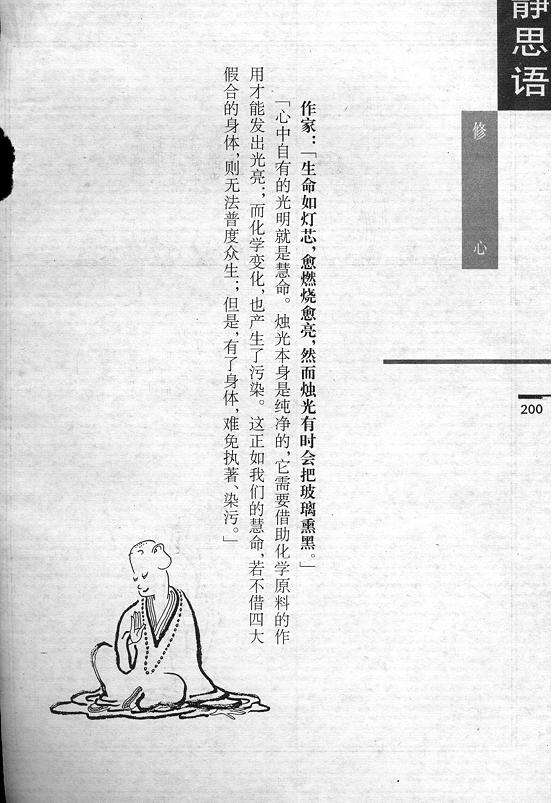 静思语
修心
200
作家：「生命如灯芯，愈燃烧愈亮，然而烛光有时会把玻璃熏黑。」
「心中自有的光明就是慧命。烛光本身是纯净的，它需要借助化学原料的作
用才能发出光亮；而化学变化，也产生了污染。这正如我们的慧命，若不借四大
假合的身体，则无法普度众生；但是，有了身体，难免执著、染污。」